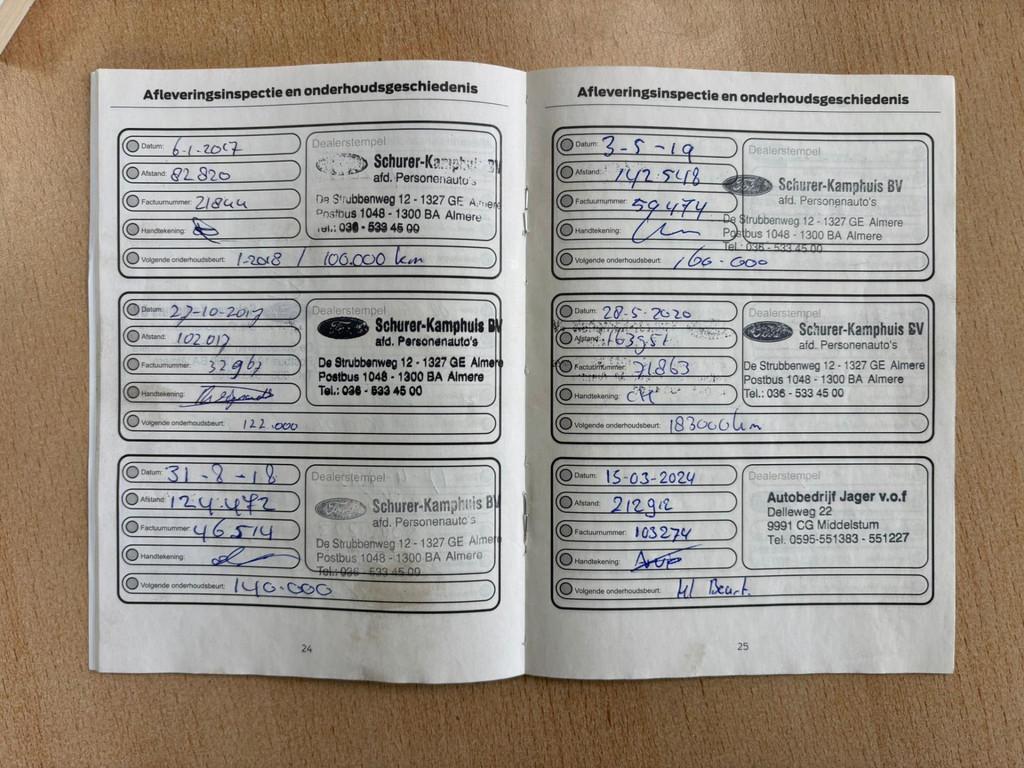 Afleveringsinspectie en onderhoudsgeschiedenis
Datum: 6-1-2017
Afstand: 82820
Factuurnummer: 21844
Handtekening:
Volgende onderhoudsbeurt: 1-2018 / 100.000 km
Dealerstempel
Schurer-Kamphuis BV
afd. Personenauto's
De Strubbenweg 12 - 1327 GE Almere
Postbus 1048 - 1300 BA Almere
Tel.: 036 - 533 45 00
Datum: 27-10-2017
Afstand: 102017
Factuurnummer: 32967
Handtekening:
Volgende onderhoudsbeurt: 122.000
Dealerstempel
Ford
Schurer-Kamphuis BV
afd. Personenauto's
De Strubbenweg 12 - 1327 GE Almere
Postbus 1048 - 1300 BA Almere
Tel.: 036 - 533 45 00
Datum: 31-8-18
Afstand: 124.472
Factuurnummer: 46514
Handtekening:
Volgende onderhoudsbeurt: 140.000
Dealerstempel
Ford
Schurer-Kamphuis BV
afd. Personenauto's
De Strubbenweg 12 - 1327 GE Almere
Postbus 1048 - 1300 BA Almere
Tel.: 036 - 533 45 00
24
Afleveringsinspectie en onderhoudsgeschiedenis
Datum: 3-5-19
Afstand: 142.548
Factuurnummer: 59474
Handtekening:
Volgende onderhoudsbeurt: 160.000
Dealerstempel
Ford
Schurer-Kamphuis BV
afd. Personenauto's
De Strubbenweg 12 - 1327 GE Almere
Postbus 1048 - 1300 BA Almere
Tel.: 036 - 533 45 00
Datum: 28-5-2020
Afstand: 163951
Factuurnummer: 71863
Handtekening:
Volgende onderhoudsbeurt: 183000 km
Dealerstempel
Ford
Schurer-Kamphuis BV
afd. Personenauto's
De Strubbenweg 12 - 1327 GE Almere
Postbus 1048 - 1300 BA Almere
Tel.: 036 - 533 45 00
Datum: 15-03-2024
Afstand: 212912
Factuurnummer: 103274
Handtekening:
Volgende onderhoudsbeurt: Beurt.
Dealerstempel
Autobedrijf Jager v.o.f
Delleweg 22
9991 CG Middelstum
Tel. 0595-551383 - 551227
25